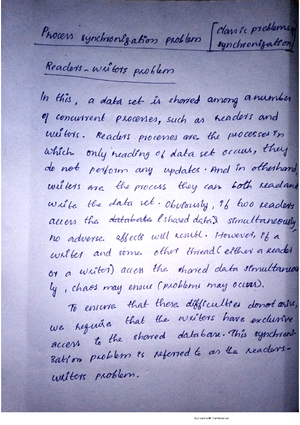 Process synchronization problem [classic problems of
synchronization]
Readers-writers problem
In this, a data set is shared among a number
of concurrent processes, such as Readers and
writers. Readers processes are the processes in
which only reading of data set occurs, they
do not perform any updates. And in otherhand,
writers are the process they can both read and
write the data set. Obviously, if two readers
access the database (shared data) simultaneously,
no adverse affects will result. However, if a
writer and some other thread (either a reader
or a writer) access the shared data simultaneous
ly, chaos may ensue (problems may occur).
To ensure that these difficulties donot arise,
we require that the writers have exclusive
access to the shared database. This synchroni-
zation problem is referred to as the readers-
writers problem.